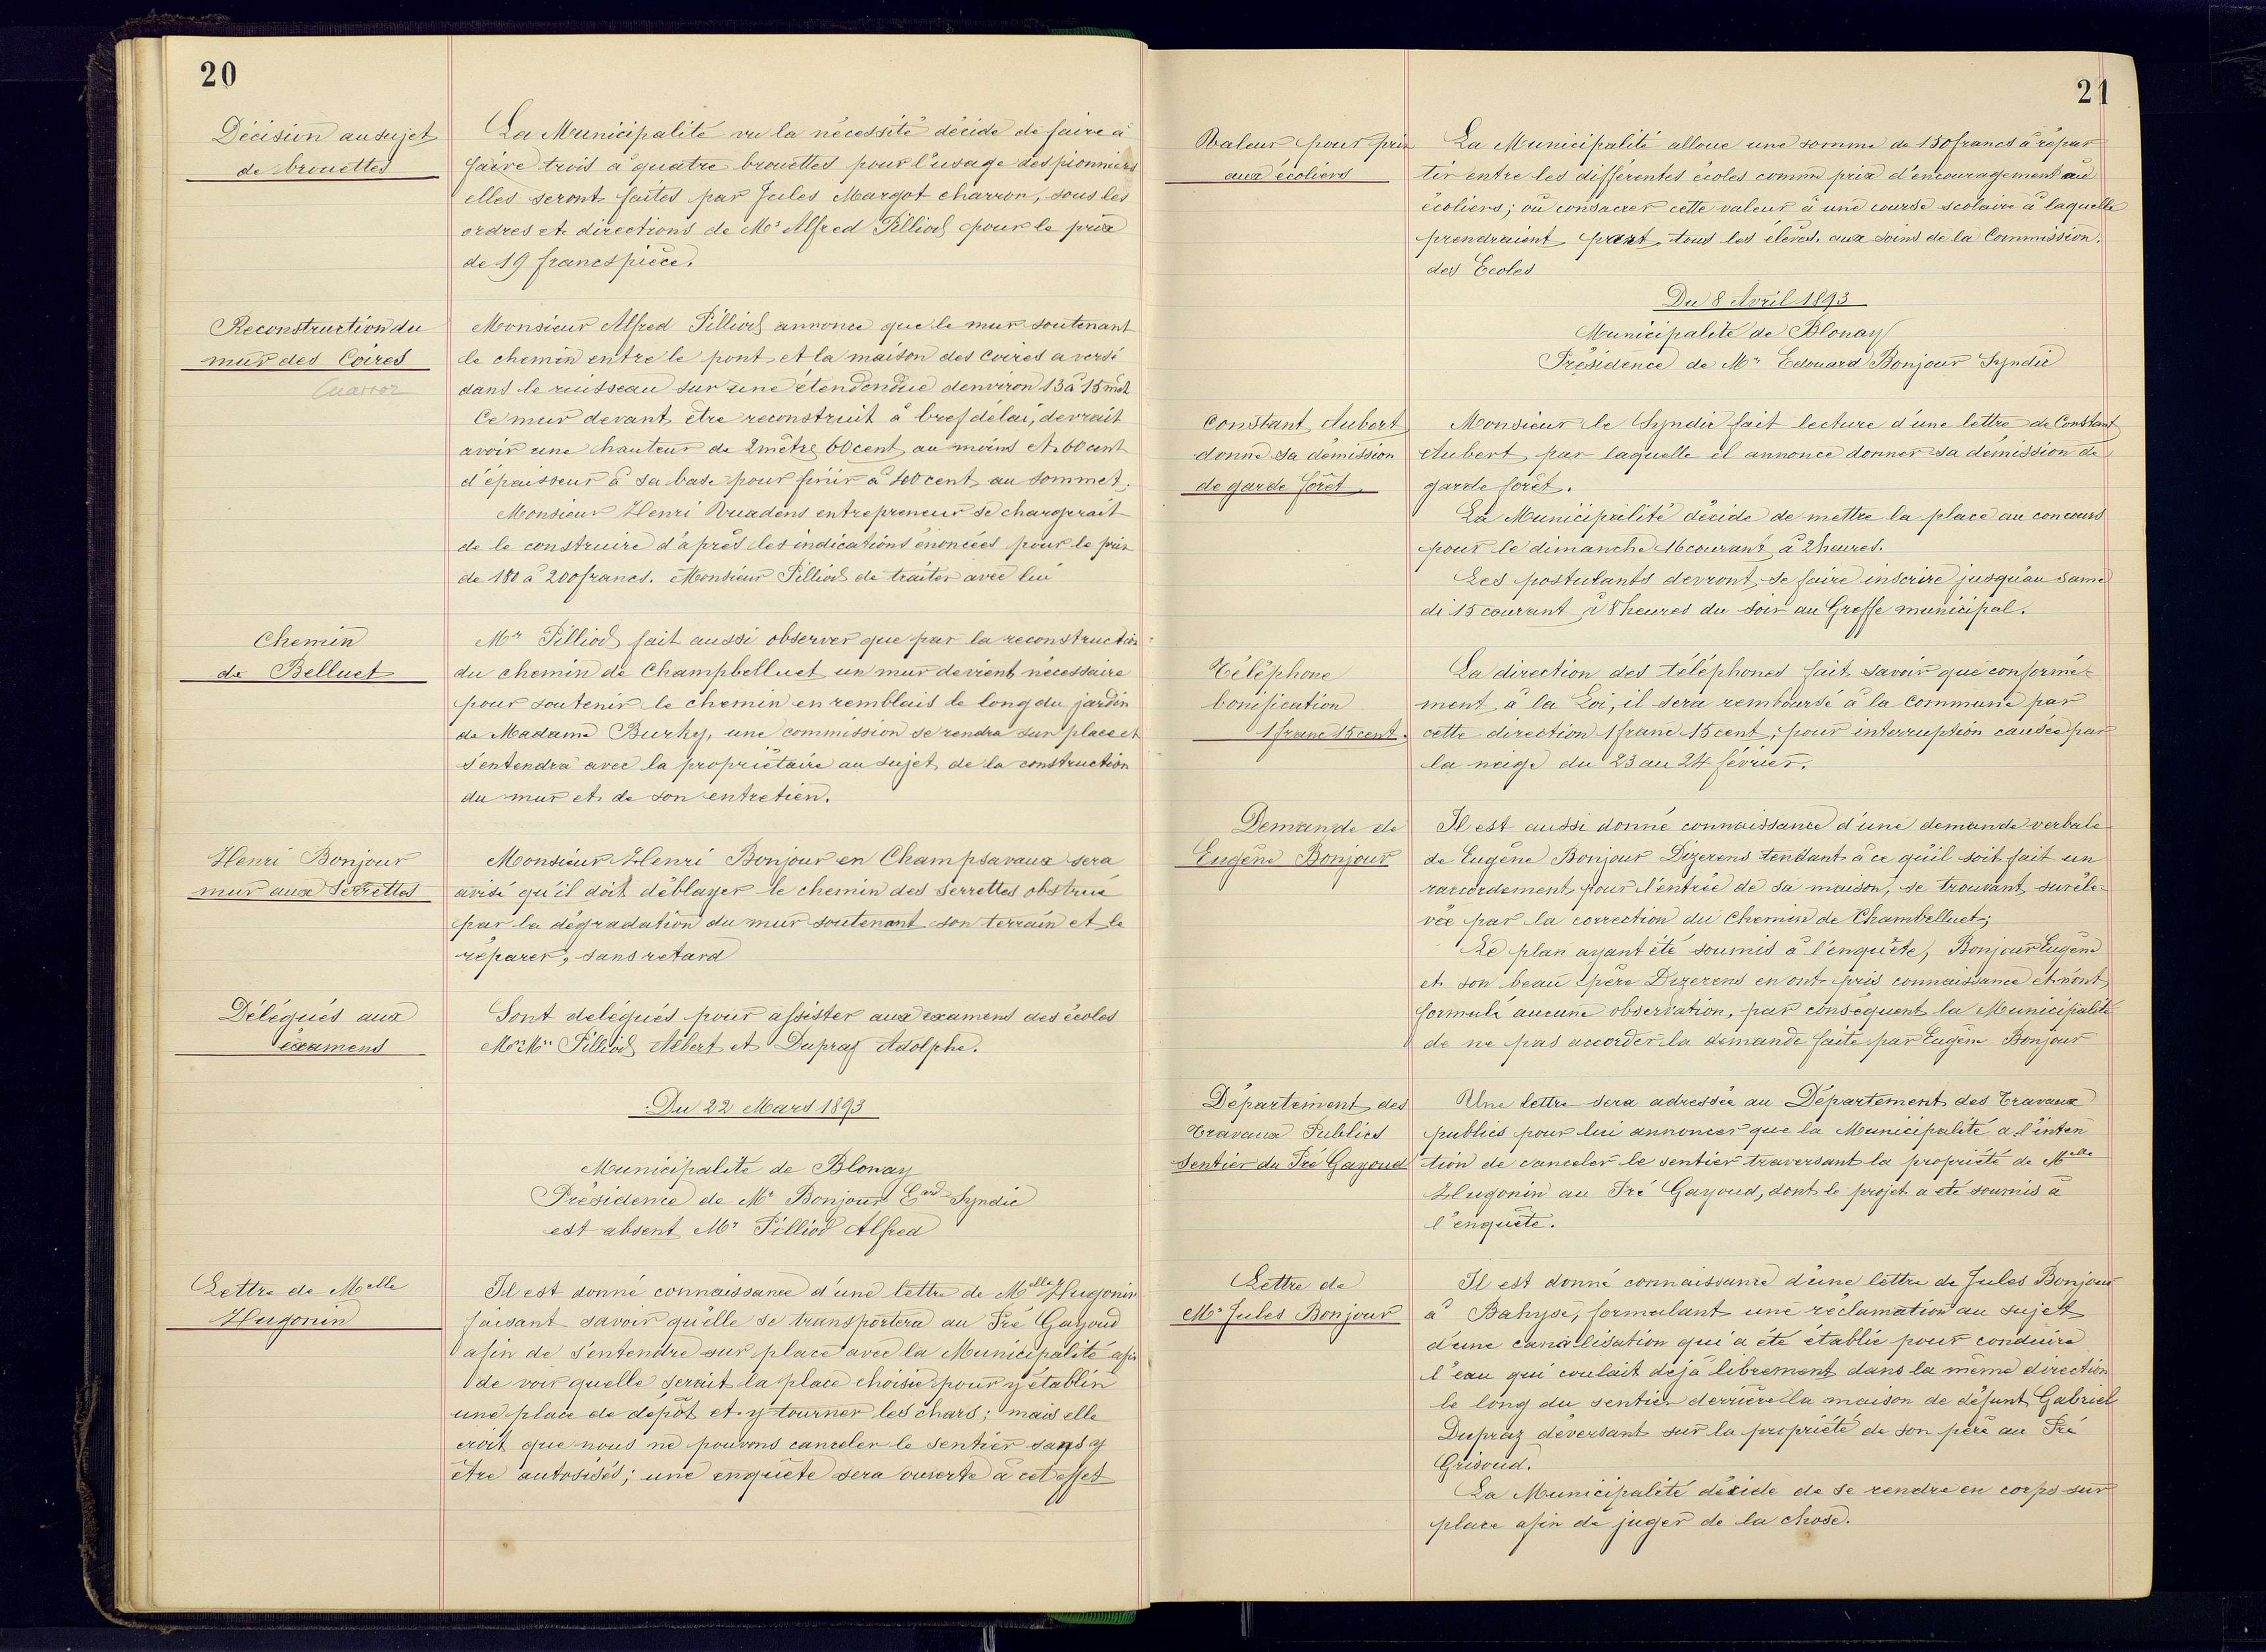 20
Décision au sujet
de brouettes
La Municipalité vu la nécessité décide de faire à
faire trois à quatre brouettes pour l'usage des pionniers
elles seront faites par Jules Margot charron, sous les
ordres et directions de Mr Alfred Pilliod pour le prix
de 19 francs pièce.
Reconstruction du
mur des Coires
Cuarroz
Monsieur Alfred Pilliod annonce que le mur soutenant
le chemin entre le pont et la maison des Coires a versé
dans le ruisseau sur une étendendue denviron 13 à 15 mèt
Ce mur devant être reconstruit à bref délai, devrait
avoir une hauteur de 2 mètre 60 cent au moins et 60 cent
d'épaisseur à sa base pour finir à 400 cent au sommet.
Monsieur Henri Vuadens entrepreneur se chargerait
de le construire d'après les indications énoncées pour le prix
de 180 à 200 francs. Monsieur Pilliod de traiter avec lui
Chemin
de Belluet
Mr Pilliod fait aussi observer que par la reconstruction
du chemin de Champbelluet un mur devient nécessaire
pour soutenir le chemin en remblais le long du jardin
de Madame Burky, une commission se rendra sur place et
s'entendra avec la propriétaire au sujet de la construction
du mur et de son entretien.
Henri Bonjour
mur aux Serrettes
Monsieur Henri Bonjour en Champsavaux sera
avisé qu'il doit déblayer le chemin des Serrettes obstrué
par la dégradation du mur soutenant son terrain et le
réparer, sans retard
Délégués aux
éxamens
Sont délégués pour assister aux examens des écoles
Mr Mrs Pilliod Albert et Dupraz Adolphe.
Du 22 Mars 1893
Municipalité de Blonay
Présidence de Mr Bonjour Eard Syndic
est absent Mr Pilliod Alfred
Lettre de Melle
Hugonin
Il est donné connaissance d'une lettre de Melle Hugonin
faisant savoir qu'elle se transportera au Pré Gayoud
afin de s'entendre sur place avec la Municipalité afin
de voir quelle serait la place choisie pour y établir
une place de dépôt et y tourner les chars; mais elle
croit que nous ne pouvons canceler le sentier sans y
être autorisés; une enquête sera ouverte à cet effet
21
Valeur pour prix
aux écoliers
La Municipalité alloue une somme de 150 francs à répar
tir entre les différentes écoles comme prix d'encouragement au
écoliers; ou consacrer cette valeur à une course scolaire à laquelle
prendraient part tous les élèves. aux soins de la Commission.
des Ecoles
Du 8 Avril 1893
Municipalité de Blonay
Présidence de Mr Edouard Bonjour Syndic
Constant Aubert
donne sa démission
de garde forêt
Monsieur le Syndic fait lecture d'une lettre de Constant
Aubert par laquelle il annonce donner sa démission de
garde forêt.
La Municipalité décide de mettre la place au concours
pour le dimanche 16 courant à 2 heures.
Les postulants devront se faire inscrire jusqu'au same
di 15 courant à 8 heures du soir au Greffe municipal.
Téléphone
bonification
1 franc 15 cent.
La direction des téléphones fait savoir que conformé-
ment à la Loi, il sera remboursé à la commune par
cette direction 1 franc 15 cent, pour interruption causée par
la neige du 23 au 24 février.
Demande de
Eugène Bonjour
Il est aussi donné connaissance d'une demande verbale
de Eugène Bonjour Dizerens tendant à ce qu'il soit fait un
raccordement pour l'entrée de sa maison, se trouvant suréle-
vée par la correction du Chemin de Chambelluet;
Le plan ayant été soumis à l'enquête, Bonjour Eugène
et son beau père Dizerens en ont pris connaissance et n'ont
formulé aucune observation, par conséquent la Municipalité
de ne pas accorder la demande faite par Eugène Bonjour
Département des
Travaux Publics
Sentier du Pré Gayoud
Une lettre sera adressée au Département des Travaux
publics pour lui annoncer que la Municipalité a l'inten
tion de canceler le sentier traversant la propriété de Melle
Hugonin au Pré Gayoud, dont le projet a été soumis à
l'enquête.
Lettre de
Mr Jules Bonjour
Il est donné connaissance d'une lettre de Jules Bonjour
à Bahyse, formulant une réclamation au sujet
d'une canalisation qui a été établie pour conduire
l'eau qui coulait déjà librement dans la même direction
le long du sentier derrière la maison de défunt Gabriel
Dupraz déversant sur la propriété de son père au Pré
Grisoud.
La Municipalité décide de se rendre en corps sur
place afin de juger de la chose.